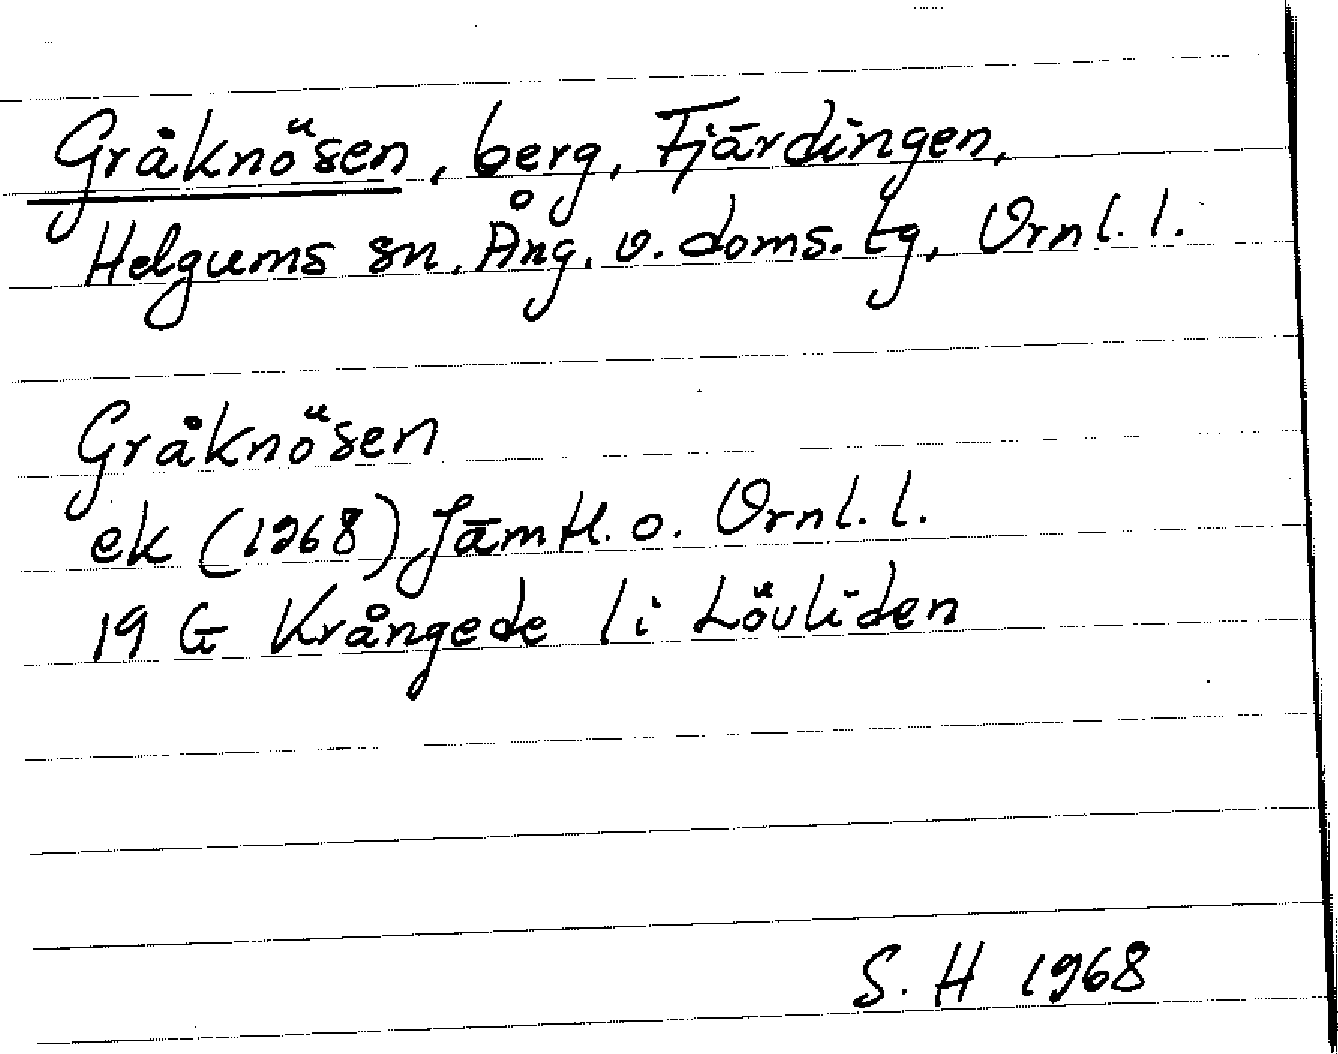 Gråknösen, berg, Fjärdingen,
Helgums sn. Ång. v. doms. tg, Vrnl. l.
Gråknösen
ek (1968) Jämtl. o. Vrnl. l.
19 G Krångede 1i Lövliden
S. H 1968